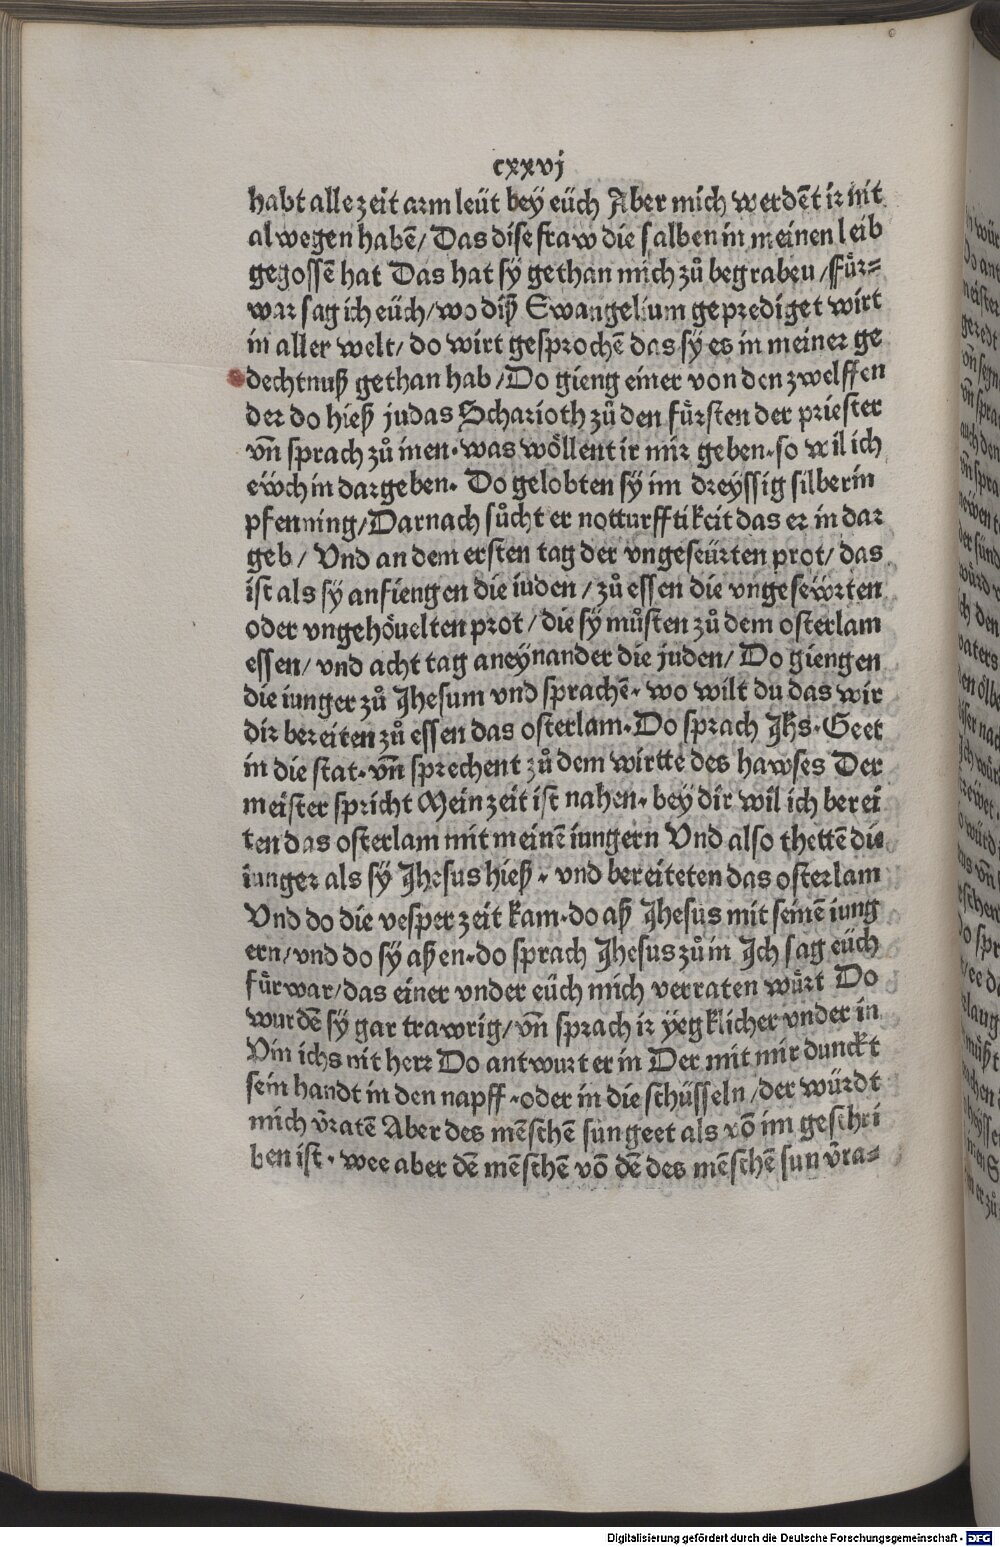 cxxvj
habt alle zeit arm leüt bey eüch Aber mich werdēt ir nit
alwegen habē/ Das dise fraw die salben in meinen leib
gegossē hat Das hat sÿ gethan mich zů begraben /Für⸗
war sag ich eüch/ wo diß Ewangelium geprediget wirt
in aller welt/ do wirt gesprochē das sÿ es in meiner ge
dechtnuß gethan hab /Do gieng einer von den zwelffen
der do hieß judas Scharioth zů den fürsten der priester
vn̄ sprach zů inen· was wöllent ir mir geben· so wil ich
eẅch in dargeben· Do gelobten sÿ im dreyssig silberin
pfenning/ Darnach sůcht er notturfftikeit das er in dar
geb / Vnd an dem ersten tag der vngeseürten prot/ das
ist als sÿ anfiengen die iuden / zů essen die vngeseẅrten
oder vngehöuelten prot / die sÿ můsten zů dem osterlam
essen/ vnd acht tag aneynander die juden/ Do giengen
die iunger zů Jhesum vnd sprachē· wo wilt du das wir
dir bereiten zů essen das osterlam· Do sprach Jhs· Geet
in die stat· vn̄ sprechent zů dem wirtte des hawses Der
meister spricht Mein zeit ist nahen· bey dir wil ich berei
ten das osterlam mit meinē iungern Vnd also thettē die
iunger als sÿ Jhesus hieß · vnd bereiteten das osterlam
Vnd do die vesper zeit kam· do aß Jhesus mit seinē iung
ern/ vnd do sÿ aßen· do sprach Jhesus zů in Ich sag eüch
fürwar/ das einer vnder eüch mich verraten würt Do
wurdē sÿ gar trawrig/ vn̄ sprach ir yegklicher vnder in
Vin ichs nit herr Do antwurt er in Der mit mir dunckt
sein handt in den napff · oder in die schüsseln /der würdt
mich v̄ratē Aber des mēschē sun geet als vō im geschri
ben ist · wee aber dē mēschē vō dē des mēschē sun v̄ra⸗
Digitalisierung gefördert durch die Deutsche Forschungsgemeinschaft - DFG